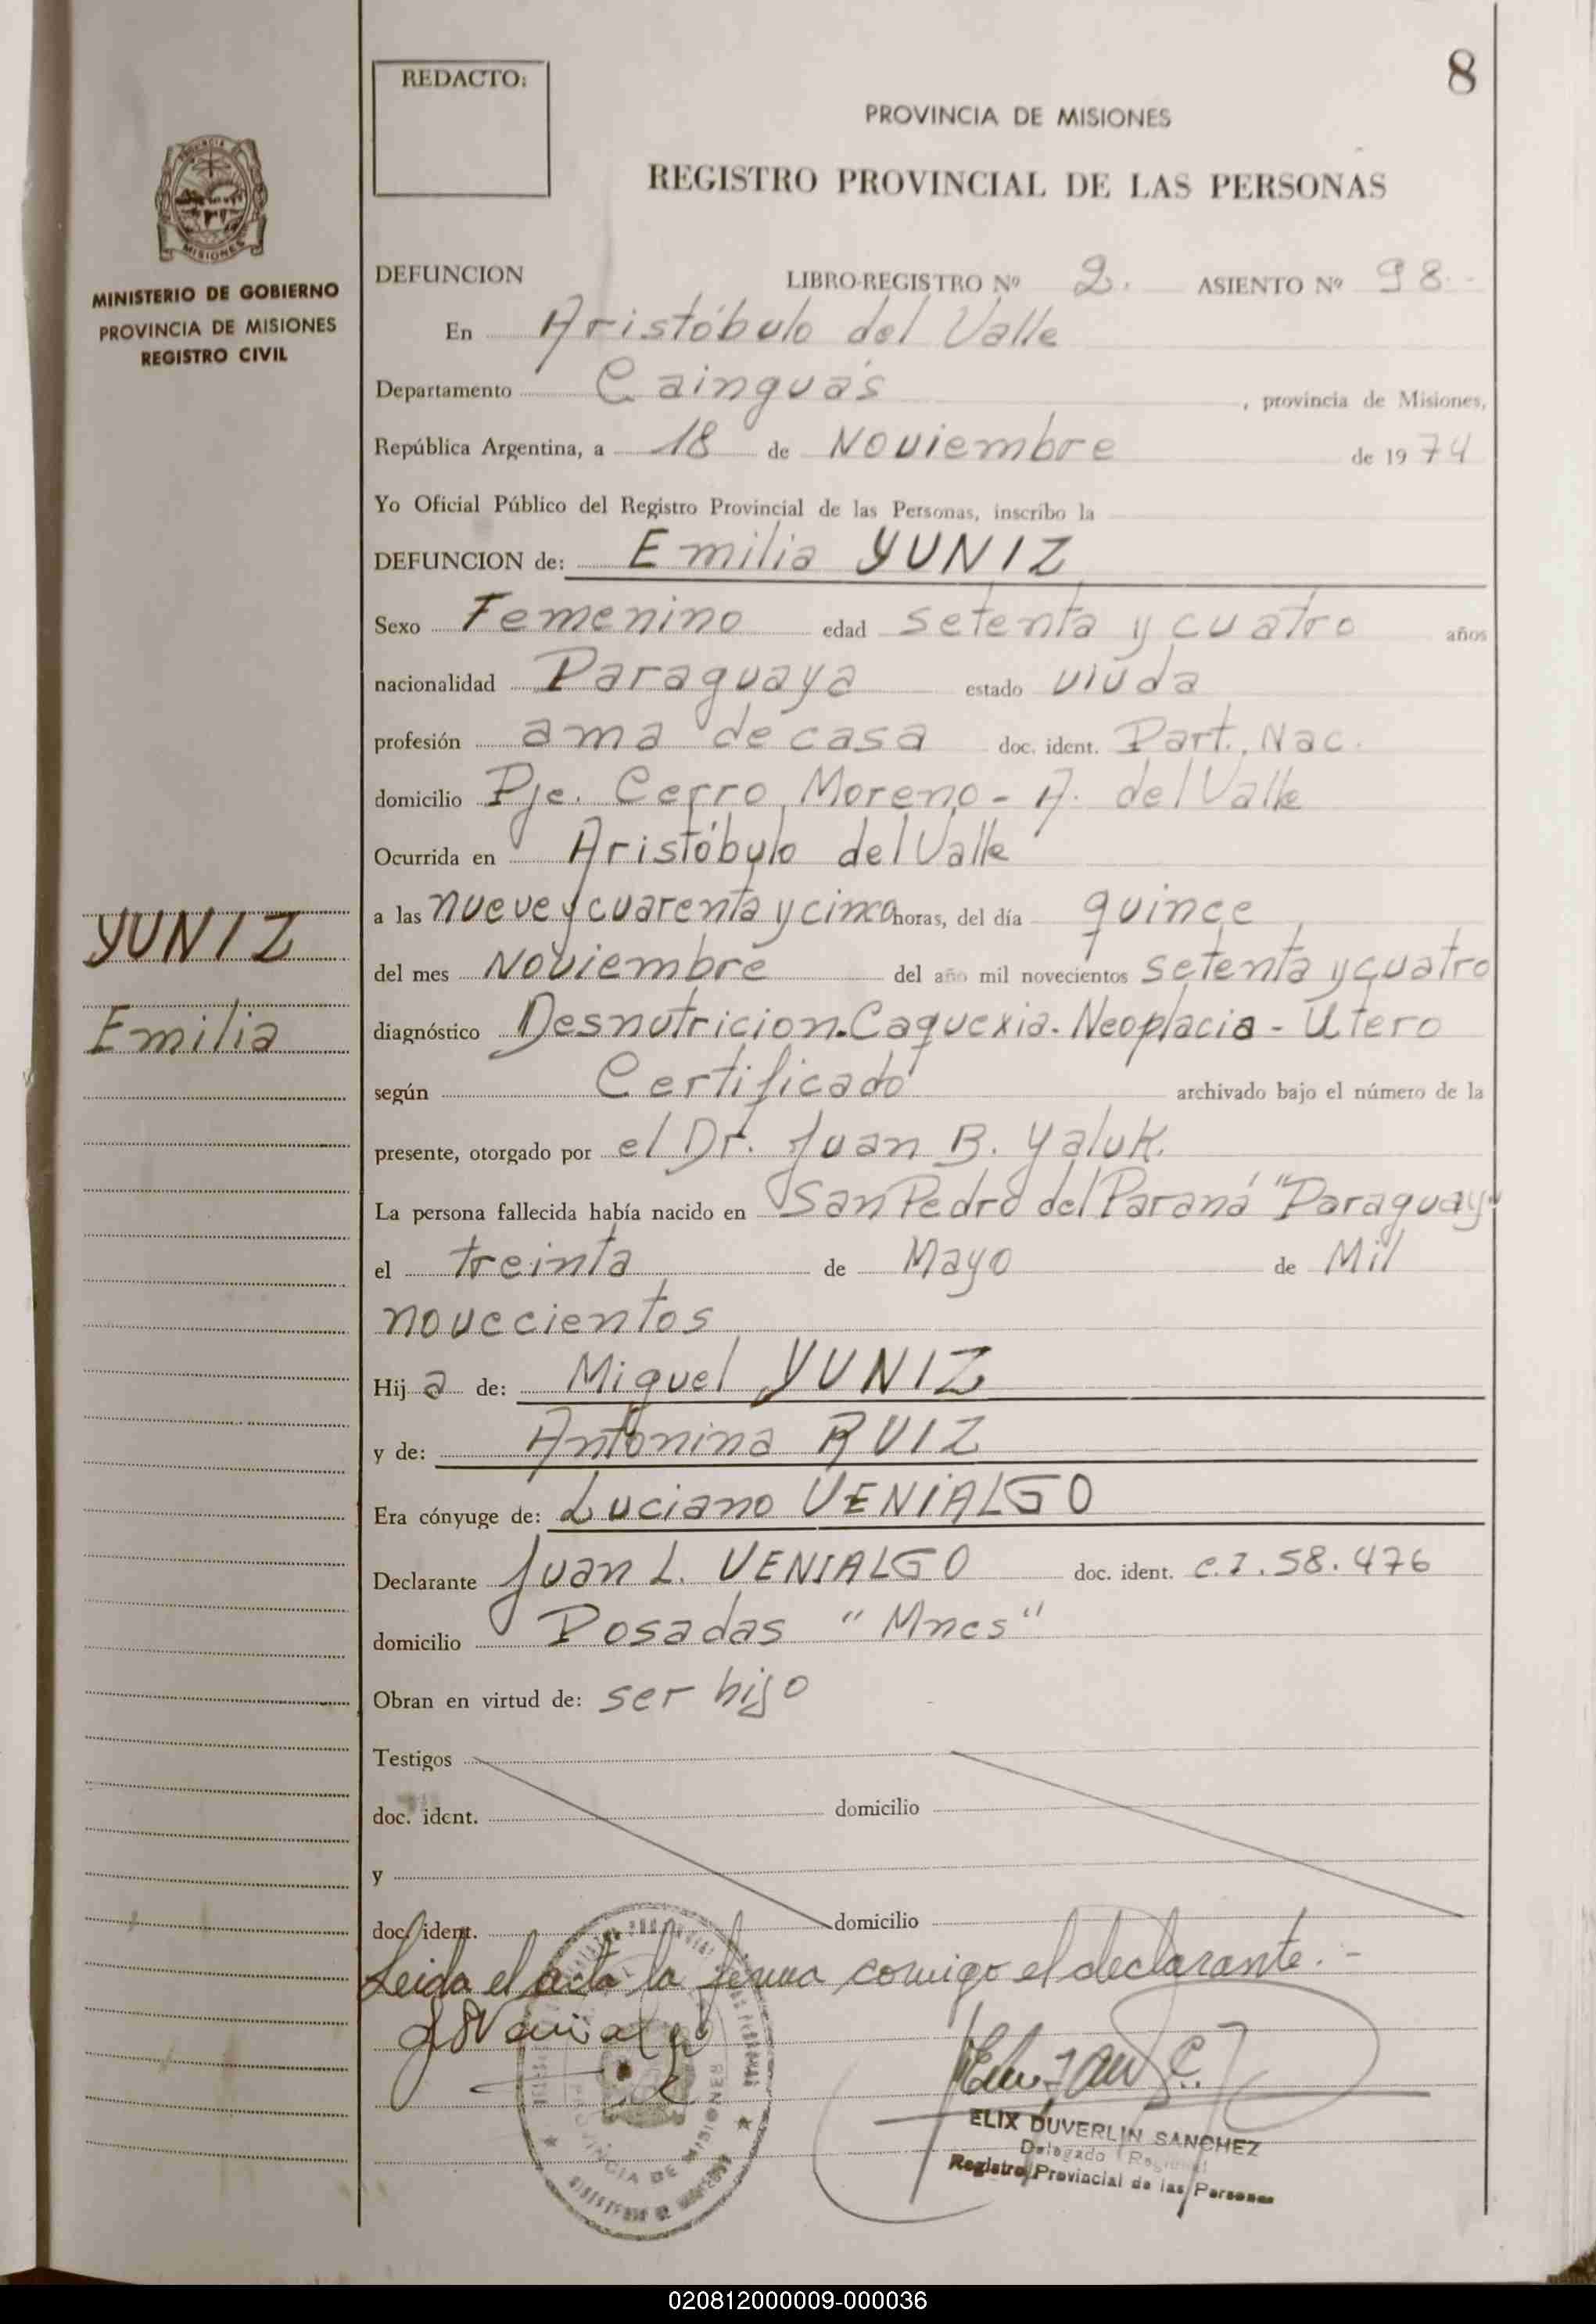 REDACTO:
8
PROVINCIA DE MISIONES
REGISTRO PROVINCIAL DE LAS PERSONAS
MISIONES
MINISTERIO DE GOBIERNO
PROVINCIA DE MISIONES
REGISTRO CIVIL
DEFUNCION LIBRO-REGISTRO Nº 2. ASIENTO Nº 98.-
En Aristóbulo del Valle
Departamento Cainguás, provincia de Misiones,
República Argentina, a 18 de Noviembre de 1974
Yo Oficial Público del Registro Provincial de las Personas, inscribo la
DEFUNCION de: Emilia YUNIZ
Sexo Femenino edad setenta y cuatro años
nacionalidad Paraguaya estado viuda
profesión ama de casa doc. ident. Part. Nac.
domicilio Pje. Cerro Moreno - A. del Valle
Ocurrida en Aristóbulo del Valle
a las nueve y cuarenta y cinco horas, del día quince
del mes Noviembre del año mil novecientos setenta y cuatro
YUNIZ
Emilia
diagnóstico Desnutricion. Caquexia. Neoplacia - Utero
según Certificado archivado bajo el número de la
presente, otorgado por el Dr. Juan B. Yaluk.
La persona fallecida había nacido en San Pedro del Paraná "Paraguay"
el treinta de Mayo de Mil
novecientos
Hij a de: Miguel YUNIZ
y de: Antonina RUIZ
Era cónyuge de: Luciano VENIALGO
Declarante Juan L. VENIALGO doc. ident. C.I. 58.476
domicilio Posadas "Mnes"
Obran en virtud de: ser hijo
Testigos
doc. ident. domicilio
y
doc. ident. domicilio
Leida el acta la firma comigo el declarante.-
PROVINCIA DE MISIONES
ELIX DUVERLIN SANCHEZ
Delegado Regional
Registro Provincial de las Personas
020812000009-000036